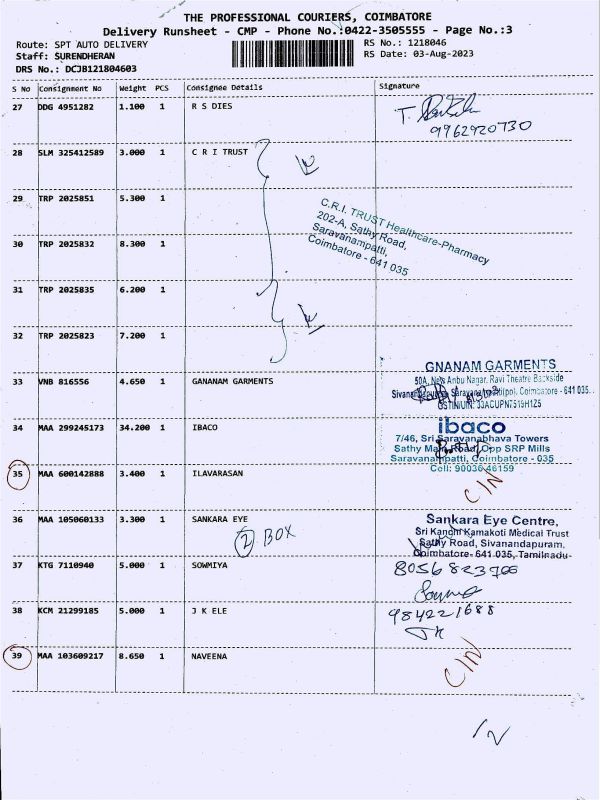 THE PROFESSIONAL COURIERS, COIMBATORE
Delivery Runsheet - CMP - Phone No.:0422-3505555 - Page No.:3
Route: SPT AUTO DELIVERY RS No.: 1218046
Staff: SURENDHERAN RS Date: 03-Aug-2023
DRS No.: DCJB121804603
S No Consignment No Weight PCS Consignee Details Signature
27 DDG 4951282 1.100 1 R S DIES
9962920730
28 SLM 325412589 3.000 1 C R I TRUST
29 TRP 2025851 5.300 1
C.R.I. TRUST Healthcare-Pharmacy
202-A, Sathy Road,
Saravanampatti,
Coimbatore - 641 035
30 TRP 2025832 8.300 1
31 TRP 2025835 6.200 1
32 TRP 2025823 7.200 1
GNANAM GARMENTS
50A, New Anbu Nagar, Ravi Theatre Backside
33 VNB 816556 4.650 1 GANANAM GARMENTS
Coimbatore - 641 035
34 MAA 299245173 34.200 1 IBACO
ibaco
7/46, Sri Saravanabhava Towers
Sathy Main Road, Opp SRP Mills
Saravanampatti, Coimbatore - 035
Cell: 90036 46159
35 MAA 600142888 3.400 1 ILAVARASAN
C/N
36 MAA 105060133 3.300 1 SANKARA EYE
2 BOX
Sankara Eye Centre,
Sri Kanchi Kamakoti Medical Trust
Sathy Road, Sivanandapuram,
Coimbatore- 641 035, Tamilnadu-
37 KTG 7110940 5.000 1 SOWMIYA
38 KCM 21299185 5.000 1 J K ELE
984221688
39 MAA 103609217 8.650 1 NAVEENA
C/N